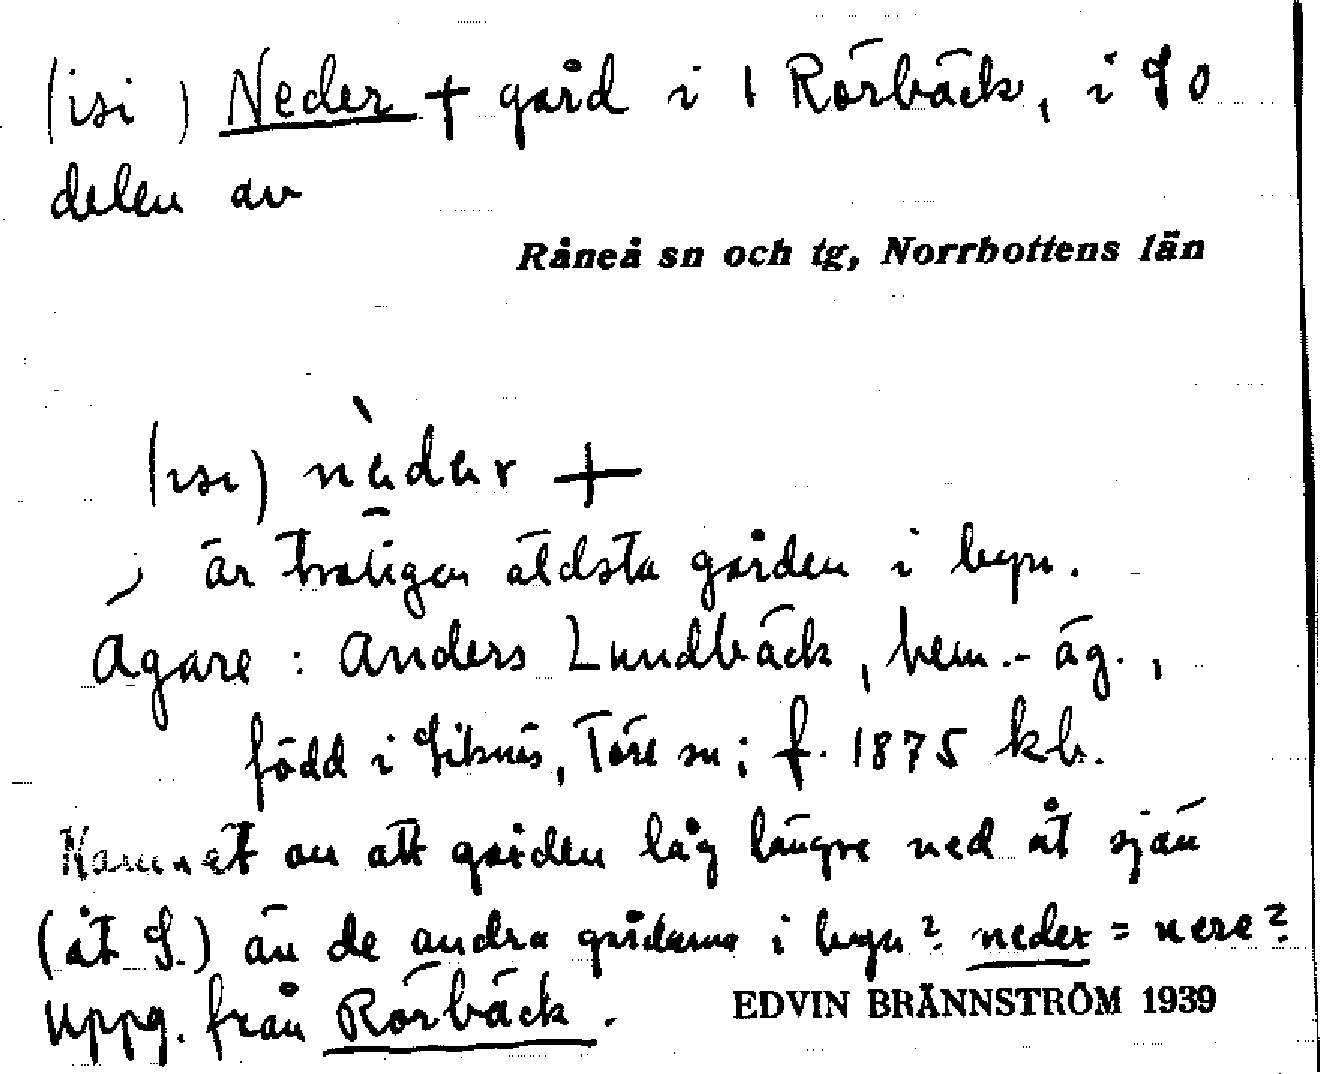 (isi) Neder + gård i 1 Rörbäck, i So
delen av
Råneå sn och tg, Norrbottens län
(isi) nè̱dar +
är troligen äldsta gården i byn.
Ägare: Anders Lundbäck, hem.-äg.,
född i Siknäs, Töre sn; f. 1875 kb.
Namnet av att gården låg längre ned åt sjön
(åt S.) än de andra gårdarna i byn? neder = nere?
Uppg. från Rörbäck.
EDVIN BRÄNNSTRÖM 1939